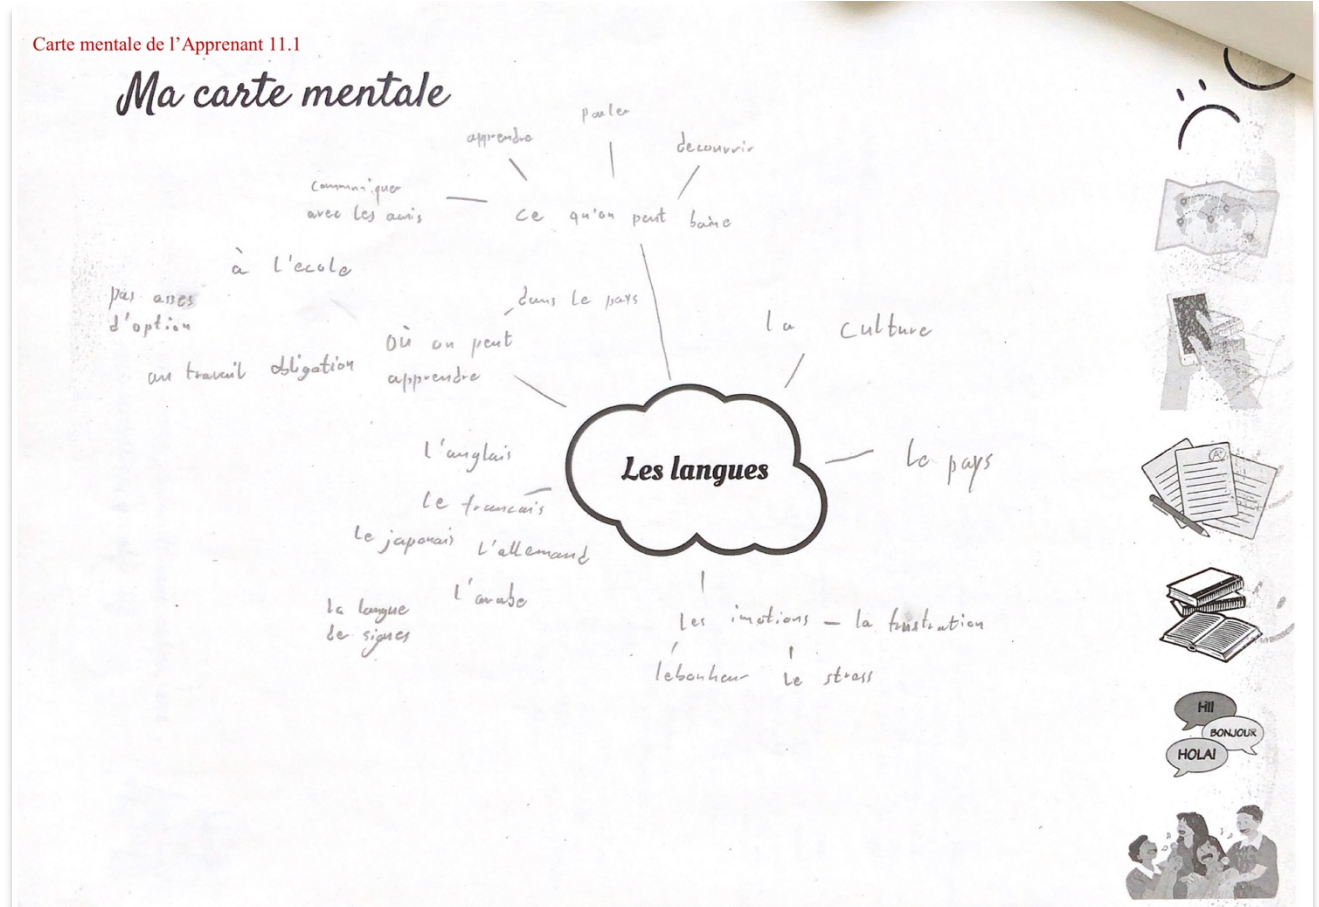 Carte mentale de l'Apprenant 11.1
Ma carte mentale
parler
apprendre
decouvrir
communiquer
avec les amis
ce qu'on peut faire
à l'ecole
pas asses
d'option
dans le pays
où on peut
apprendre
au travail obligation
la culture
Les langues
le pays
l'anglais
le francais
le japonais l'allemand
l'arabe
la langue
de signes
les imotions - la frustration
lebonheur le stress
HII
BONJOUR
HOLA!
A+